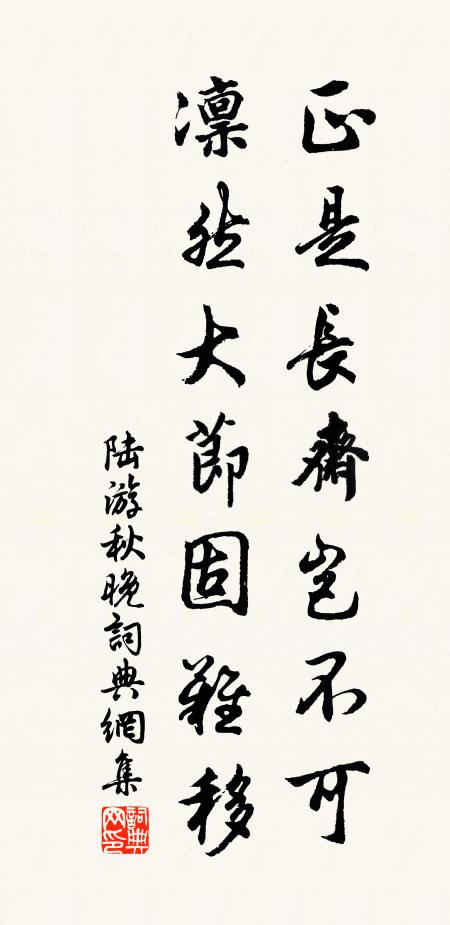 正是長齋豈不可
凜然大節固難移
陸游秋晚詞典網集
詞典网印